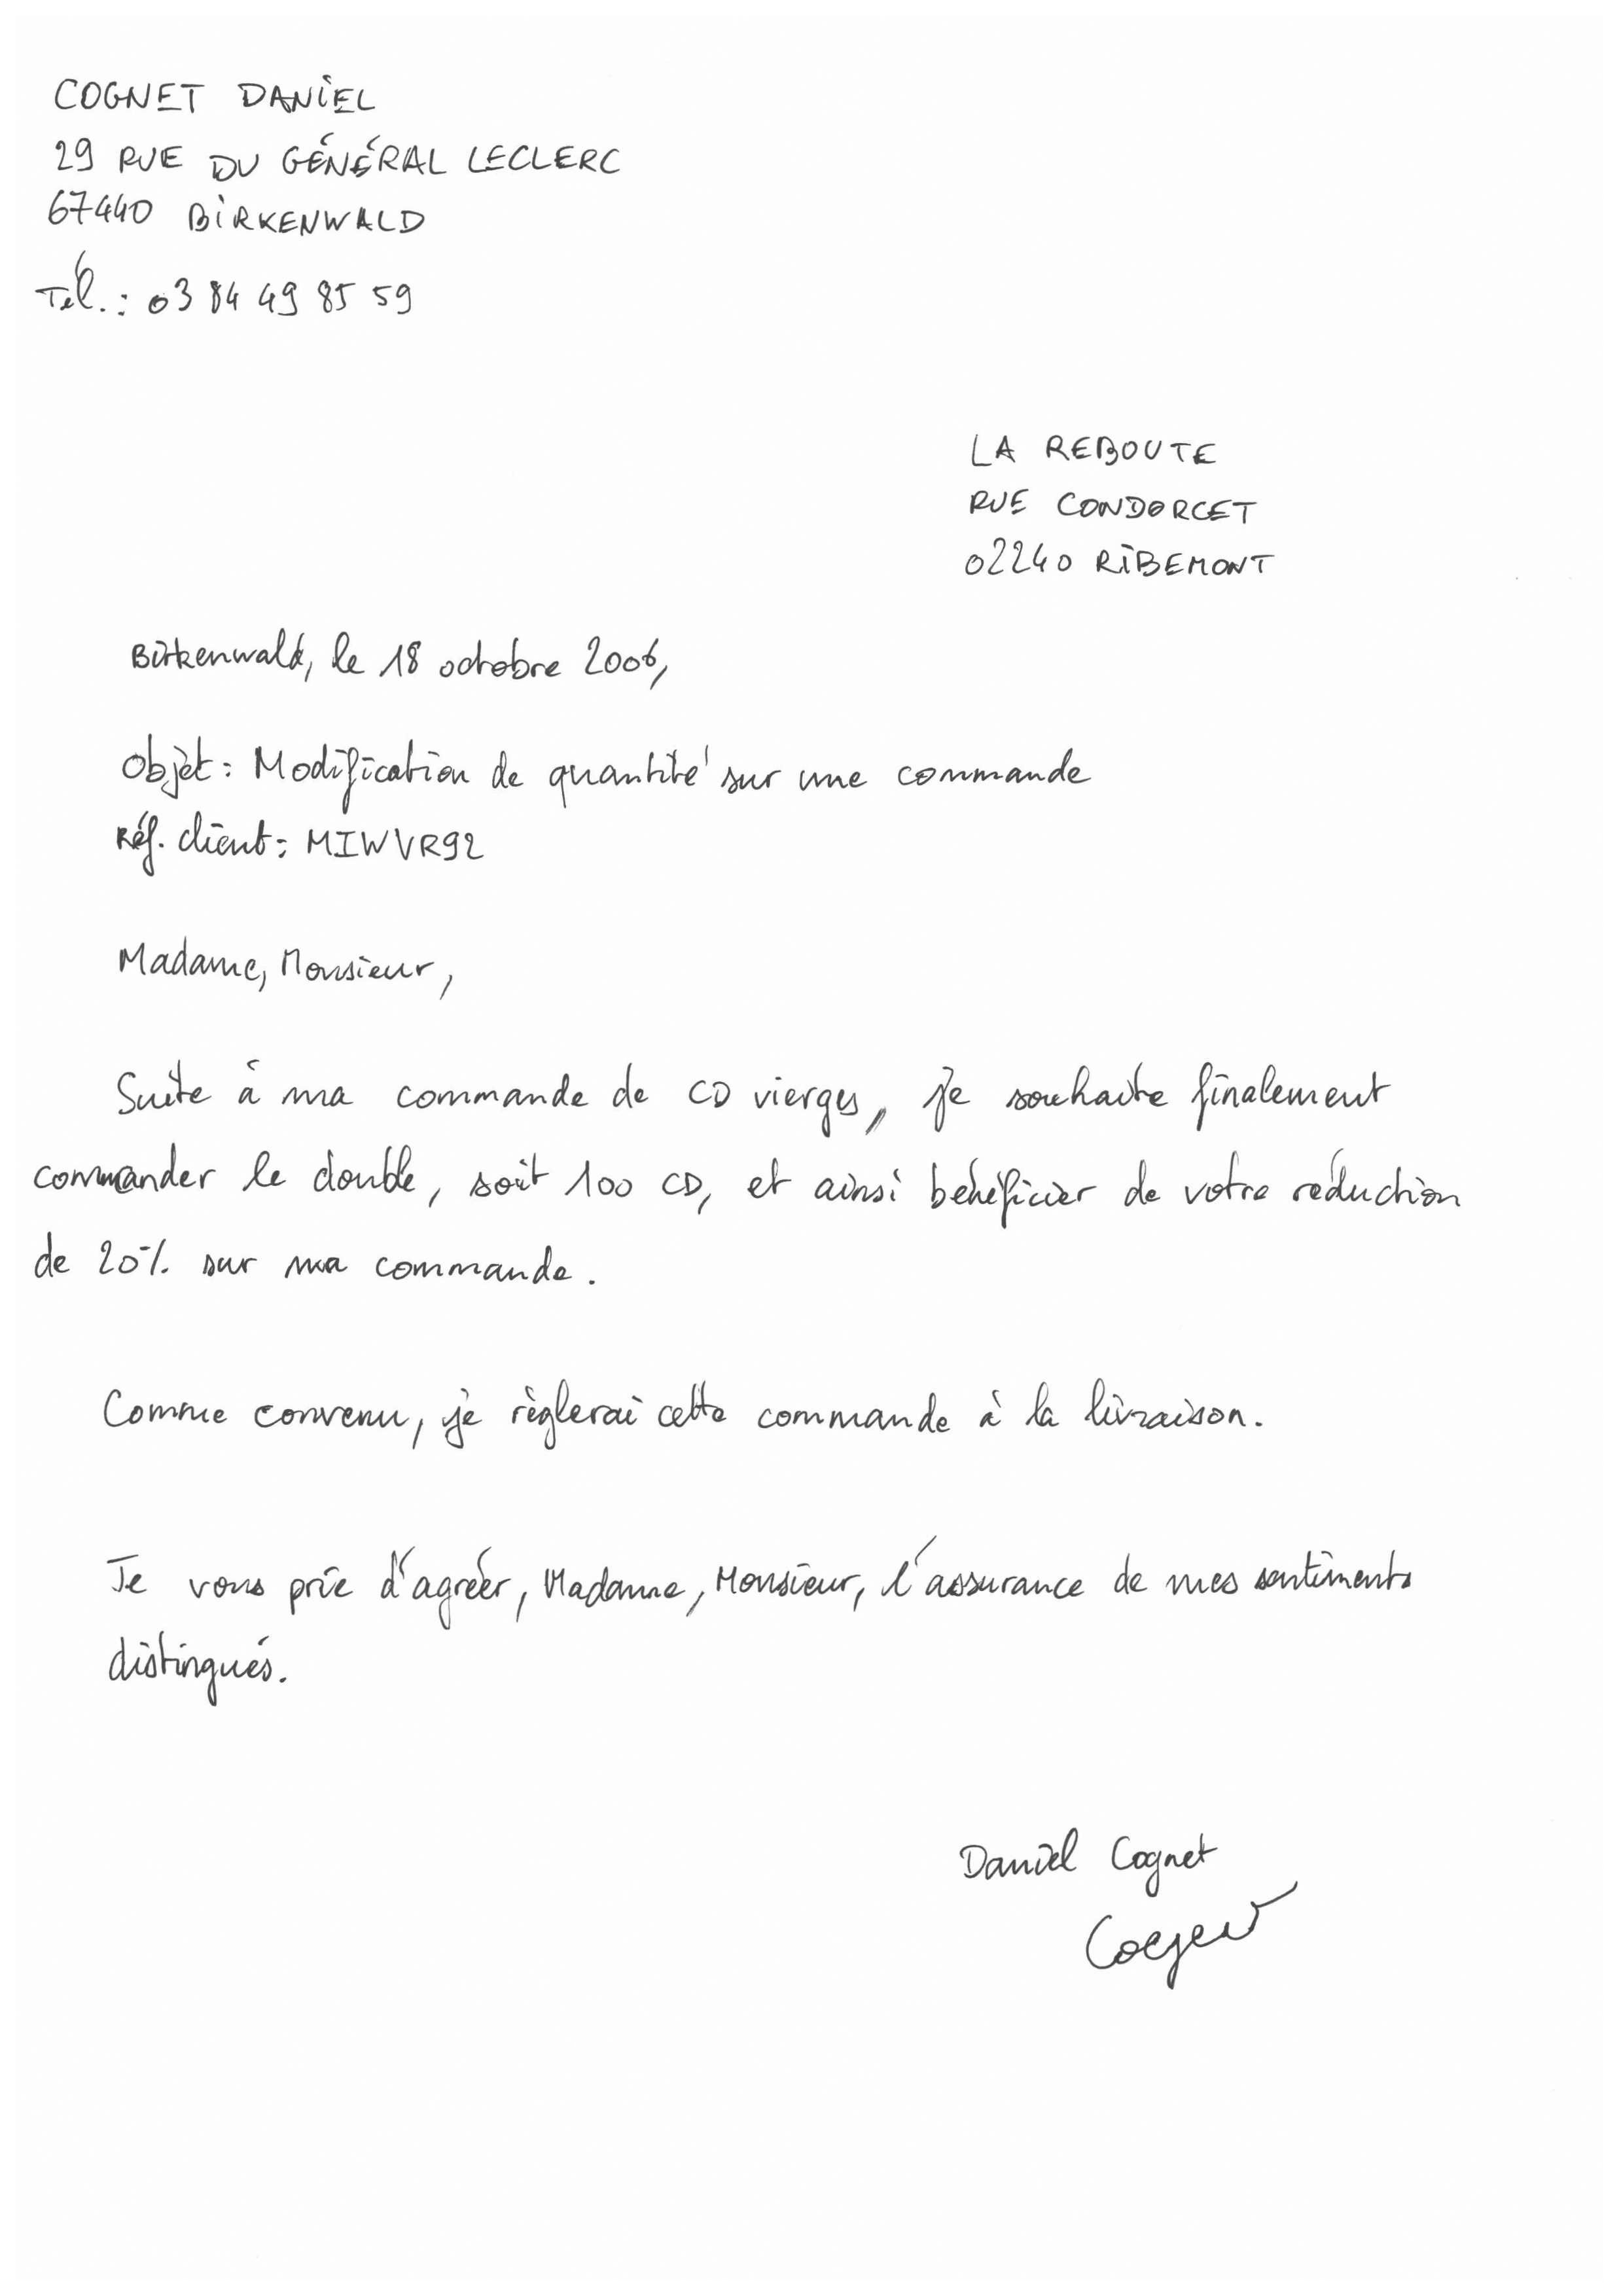 COGNET DANIEL
29 RUE DU GÉNÉRAL LECLERC
67440 BIRKENWALD
Tél.: 03 84 49 85 59
LA REBOUTE
RUE CONDORCET
02240 RIBEMONT
Birkenwald, le 18 octobre 2006,
Objet: Modification de quantité sur une commande
Réf. client: MIWVR92
Madame, Monsieur,
Suite à ma commande de CD vierges, je souhaite finalement
commander le double, soit 100 CD, et ainsi bénéficier de votre réduction
de 20% sur ma commande.
Comme convenu, je règlerai cette commande à la livraison.
Je vous prie d'agréer, Madame, Monsieur, l'assurance de mes sentiments
distingués.
Daniel Cognet